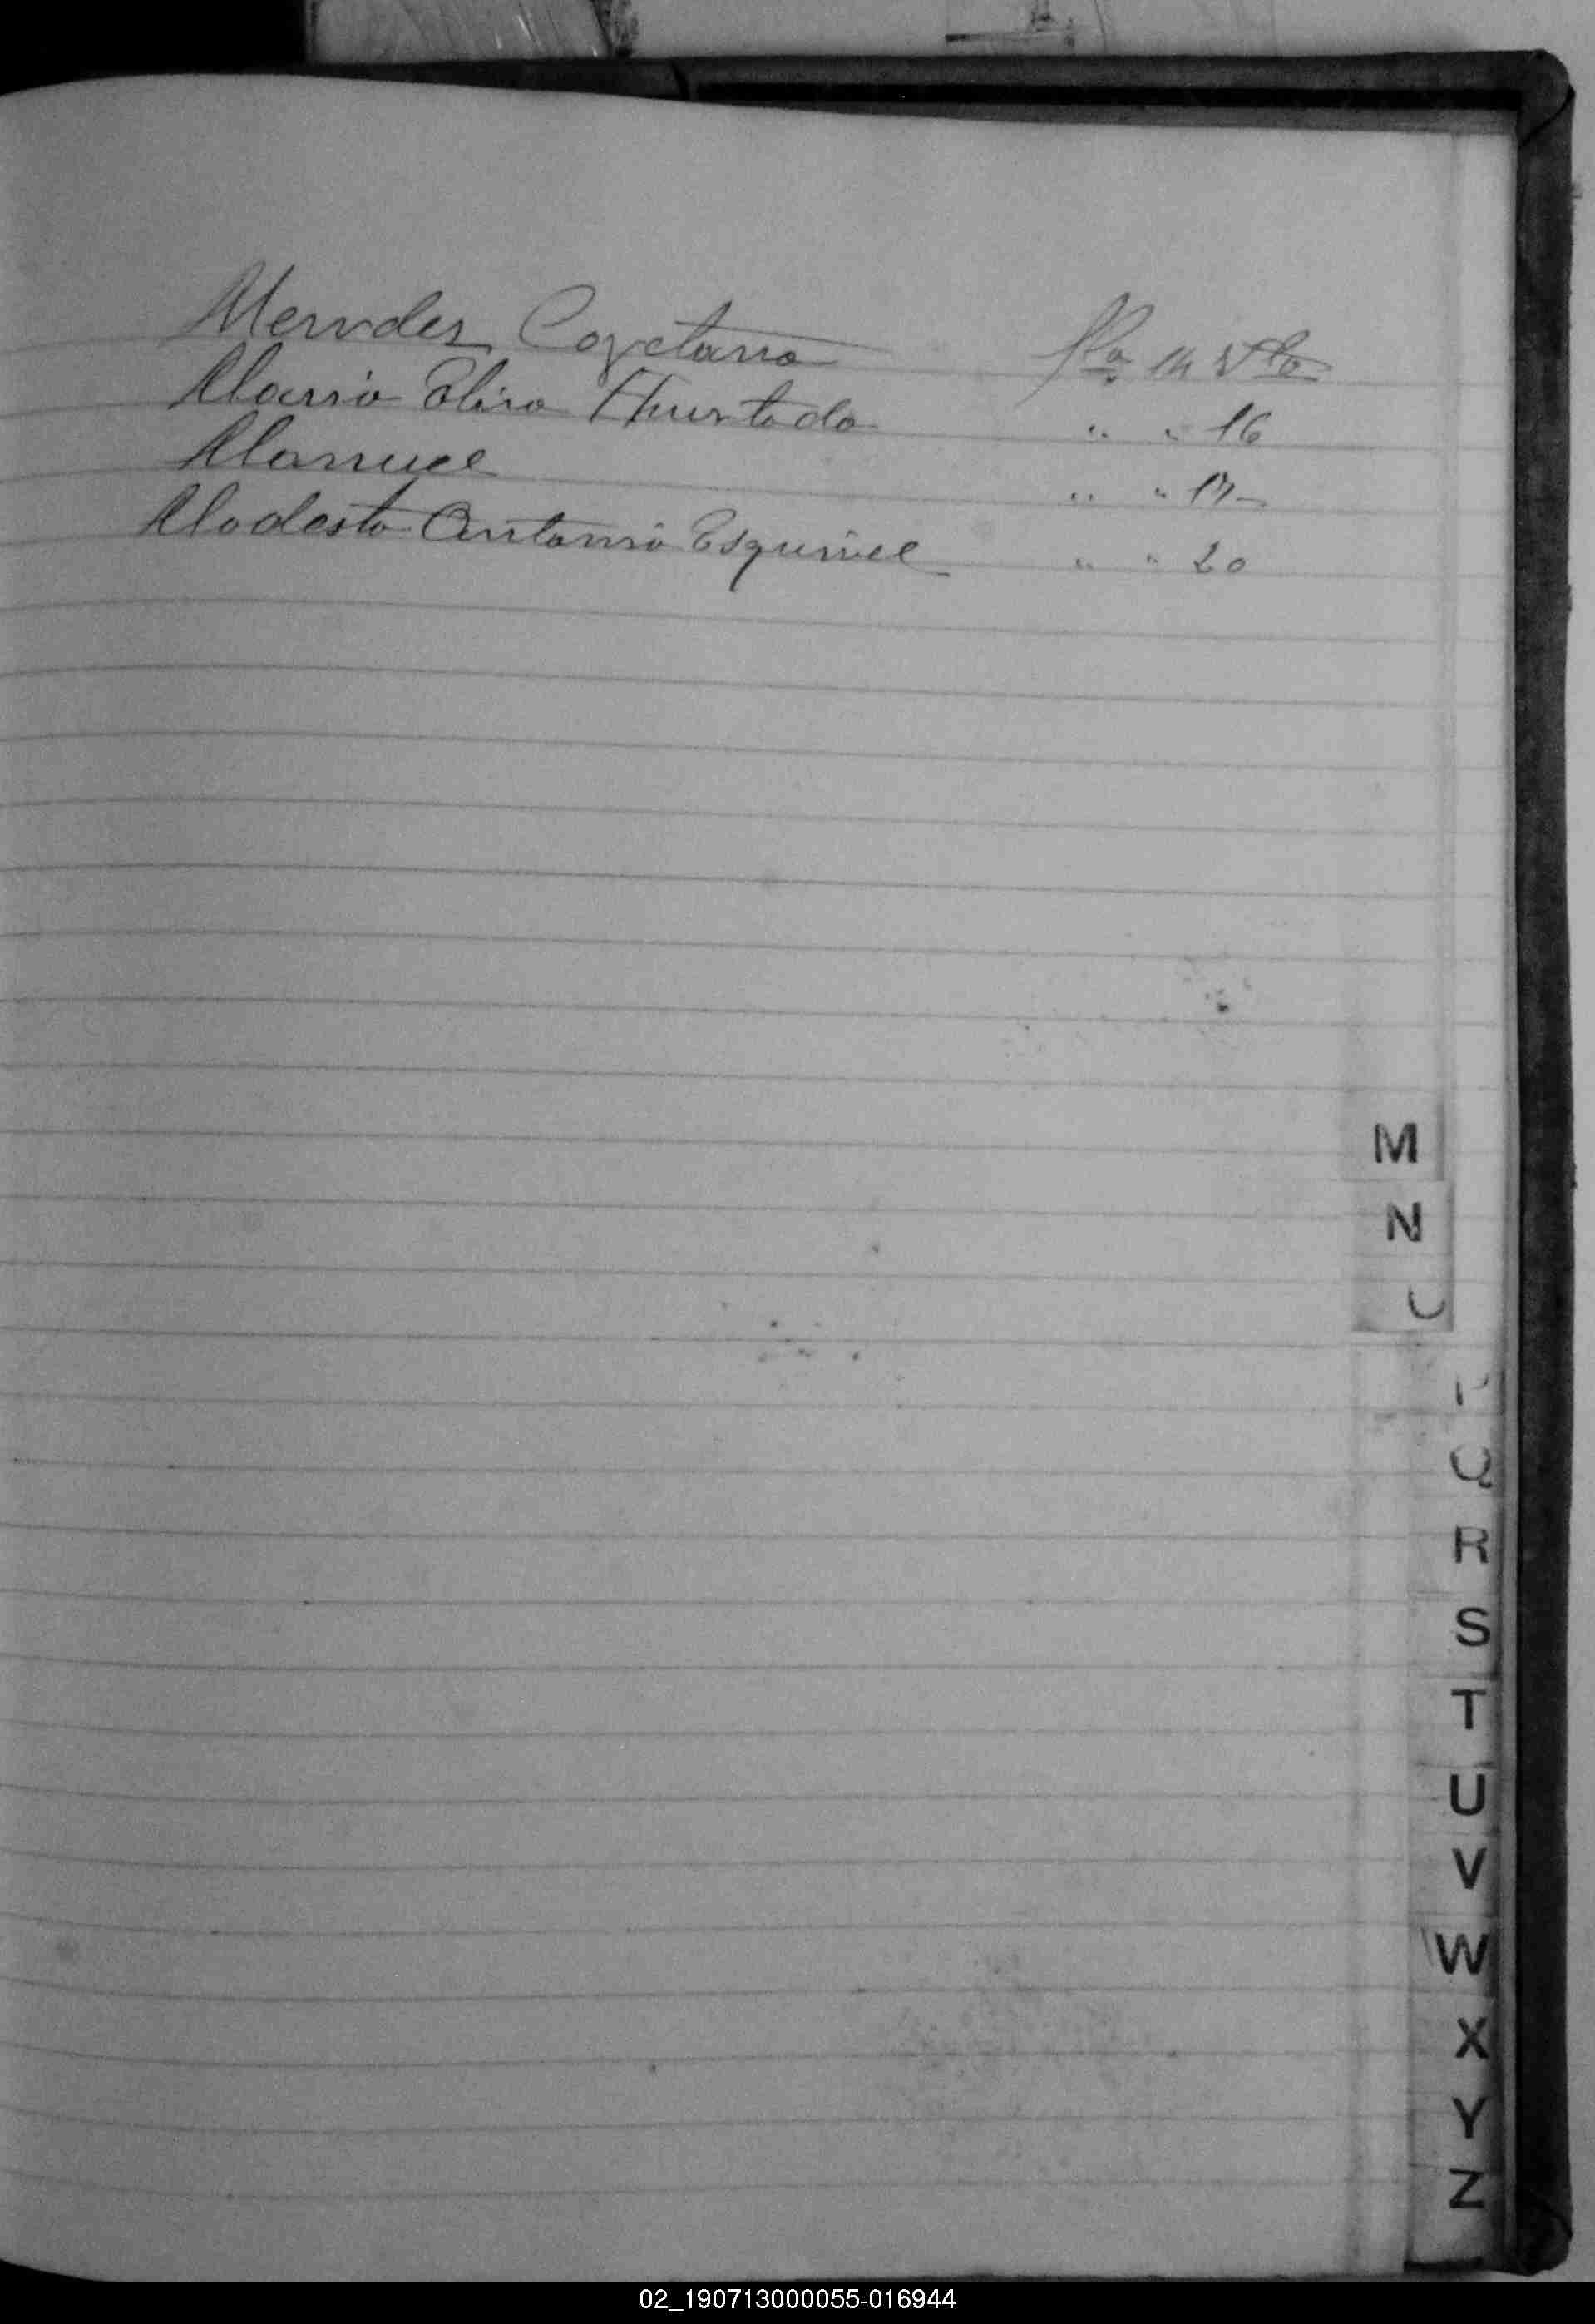 Mendes Cayetano flo 14 vto
Maria Elisa Hurtado " " 16
Manuel " " 17
Modesto Antonio Esquivel " " 20
M
N
Q
R
S
T
U
V
W
X
Y
Z
02_190713000055-016944